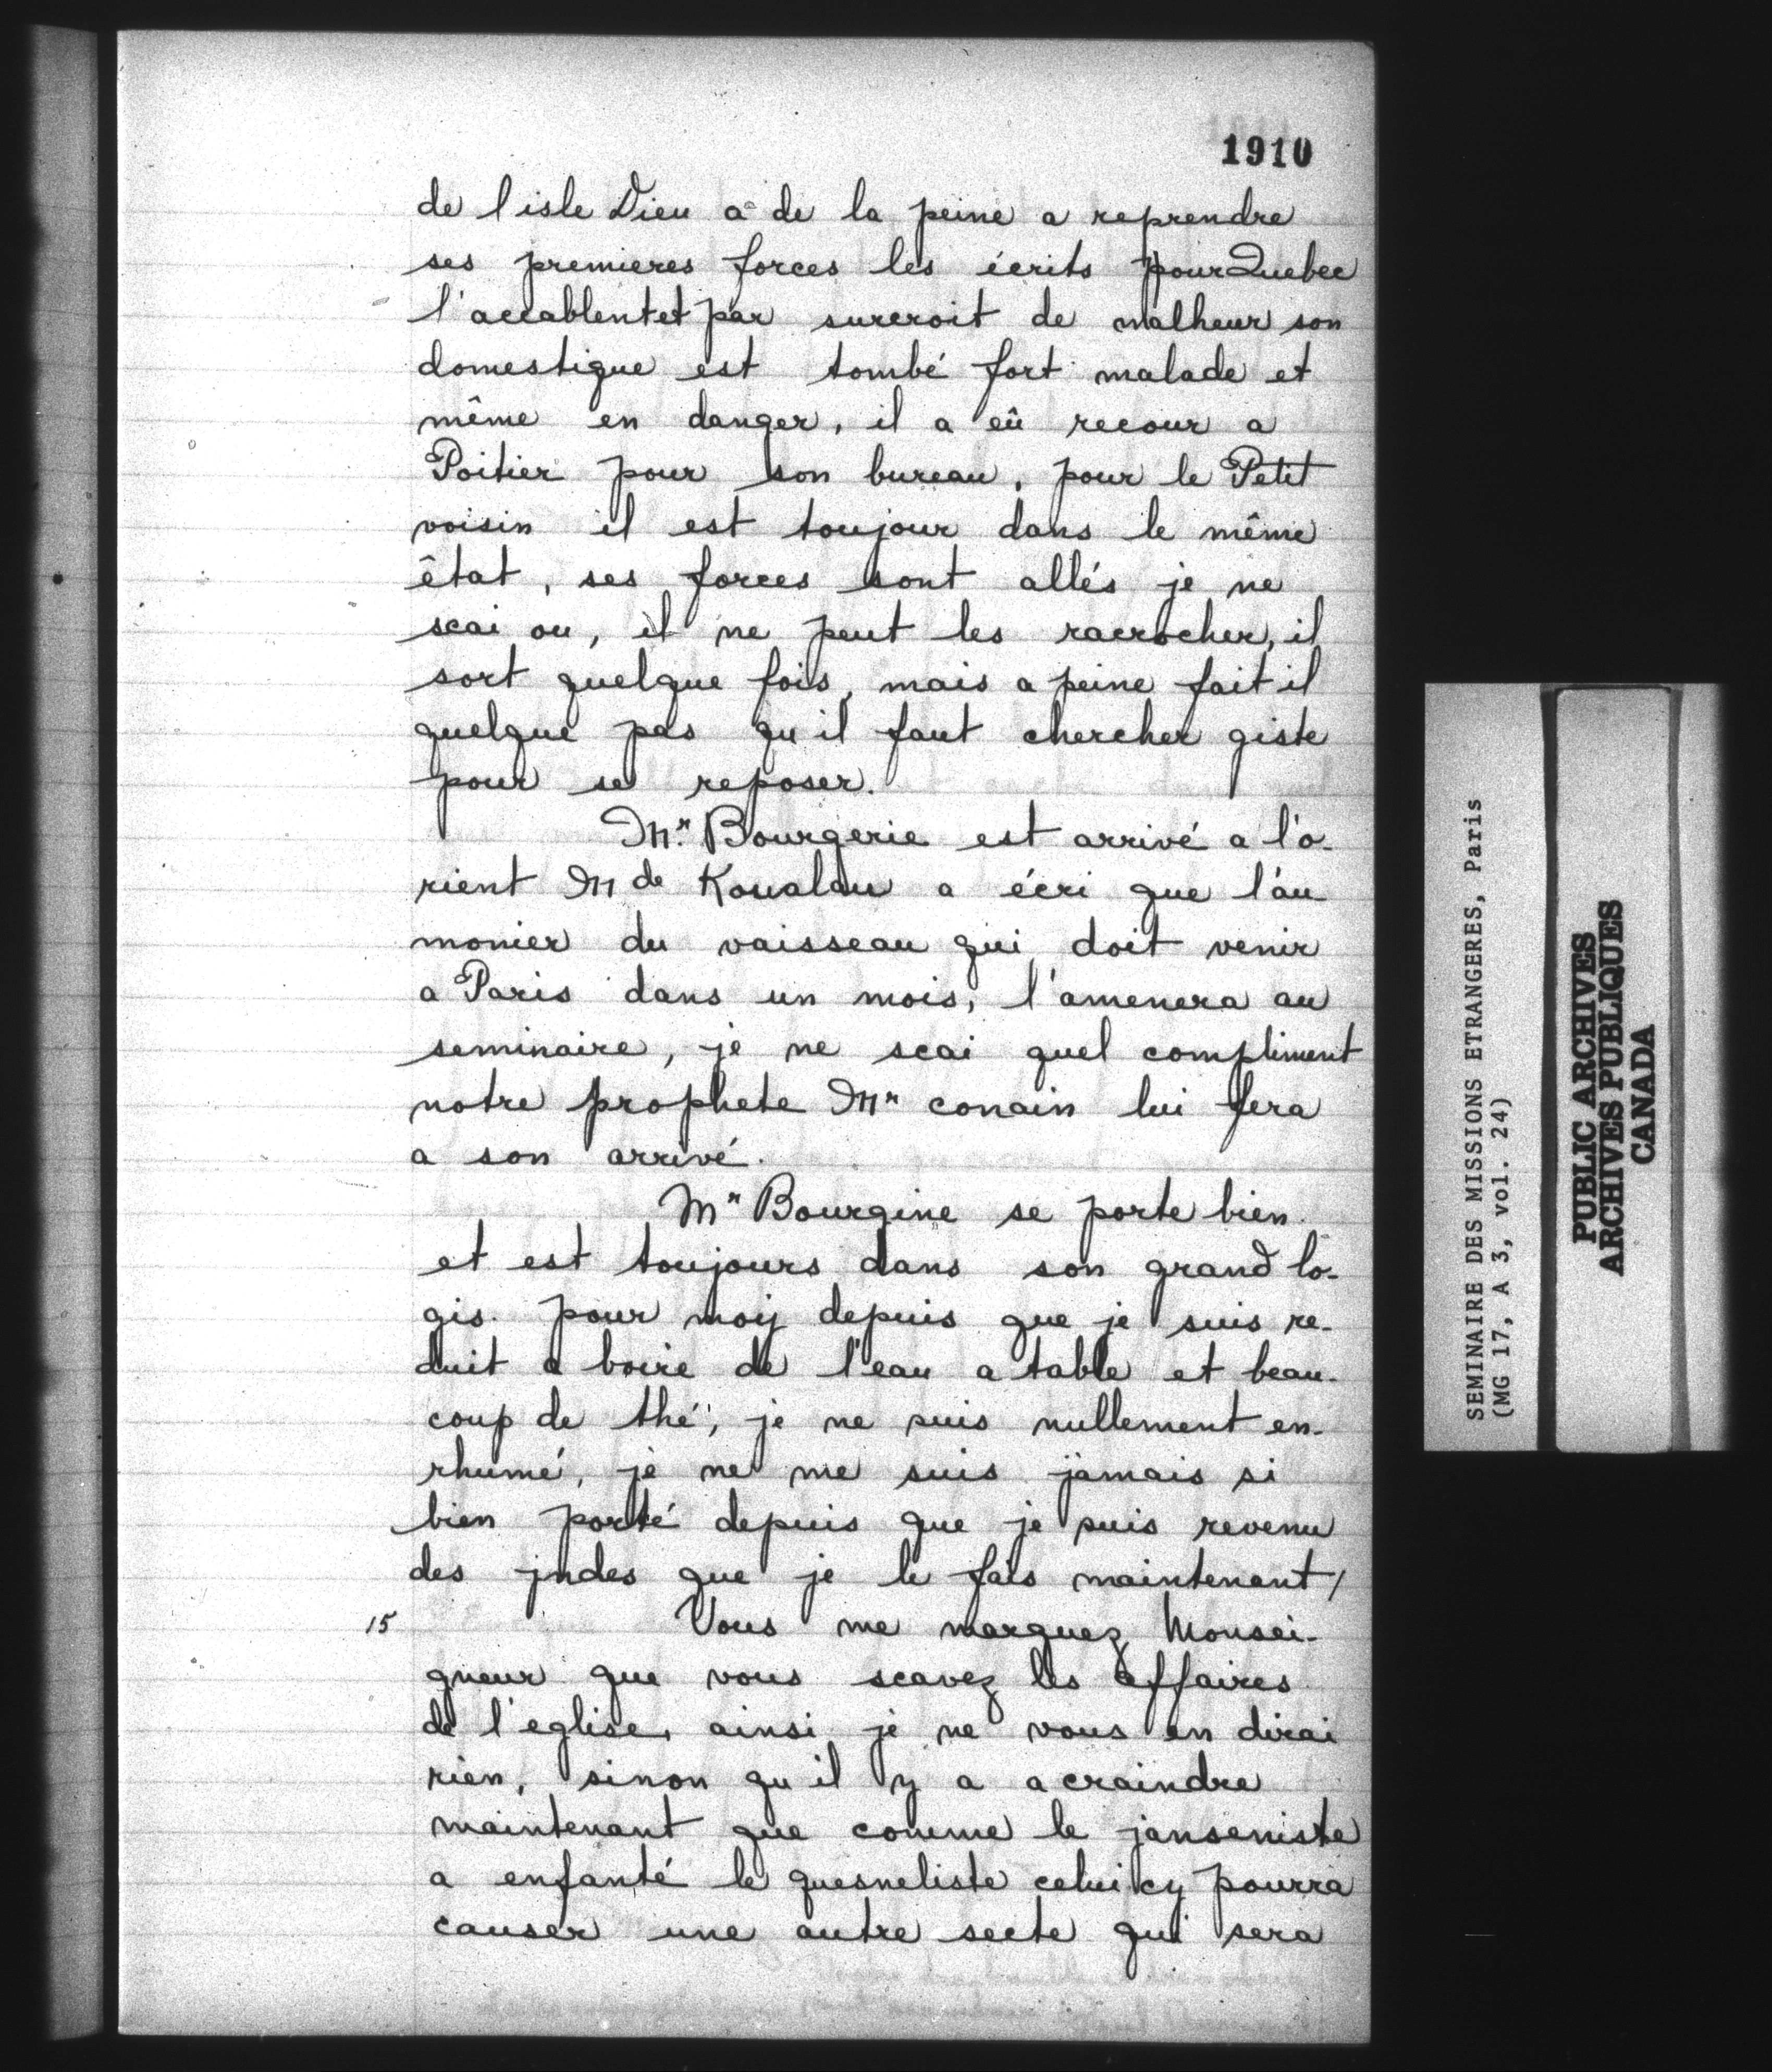 1910
de l'isle Dieu a de la peine a reprendre
ses premieres forces les écrits pour Quebec
l'accablent et par surcroit de malheur son
domestique est tombé fort malade et
même en danger, il a eû recour a
Poitier pour son bureau, pour le Petit
voisin il est toujour dans le même
êtat, ses forces sont allés je ne
scai ou, il ne peut les racrocher, il
sort quelque fois, mais a peine fait il
quelque pas qu'il faut chercher giste
pour se reposer.
Mr. Bourgerie est arrivé a l'o-
rient M de Koualau a écri que l'au
monier du vaisseau qui doit venir
a Paris dans un mois, l'amenera au
seminaire, je ne scai quel compliment
notre prophete Mr conain lui fera
a son arrivé.
Mr Bourgine se porte bien
et est toujours dans son grand lo-
gis. pour moy depuis que je suis re-
duit a boire de l'eau a table et beau-
coup de thé, je ne suis nullement en-
rhumé, je ne me suis jamais si
bien porté depuis que je suis revenu
des jndes que je le fais maintenant/
15 Vous me marquez Monsei-
gneur que vous scavez les affaires
de l'eglise, ainsi je ne vous en dirai
rien, sinon qu'il y a a craindre
maintenant que comme le janseniste
a enfanté le quesneliste celui cy pourra
causer une autre secte qui sera
SEMINAIRE DES MISSIONS ETRANGERES, Paris
(MG 17, A 3, vol. 24)
PUBLIC ARCHIVES
ARCHIVES PUBLIQUES
CANADA